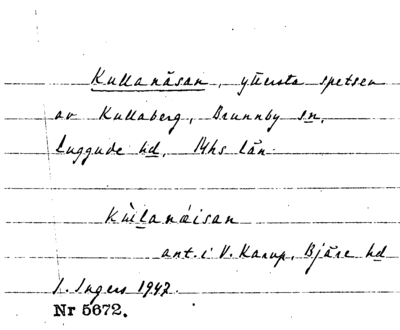 Kullanäsan, yttersta spetsen
av Kullaberg, Brunnby sn,
Luggude hd, Mhs län.
Kùlanǽisan
ant. i V. Karup, Bjäre hd
I. Ingers 1942.
Nr 5672.